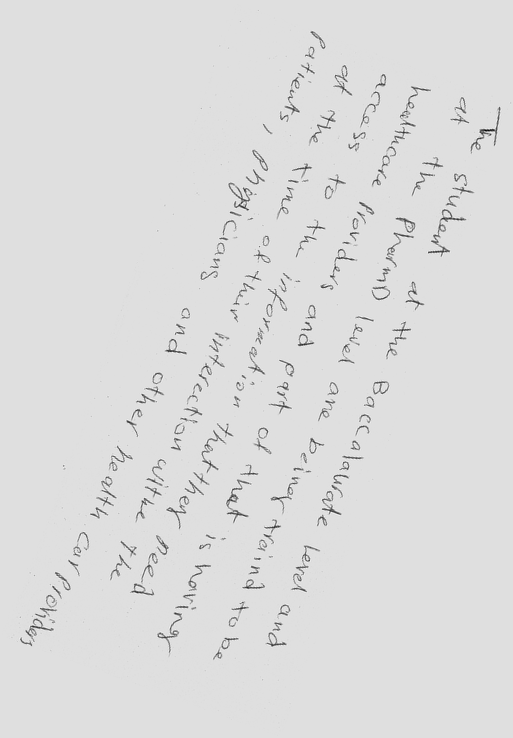 The student at the Baccalaurate level and
at the PharmD level are being traind to be
healthcare Providers and part of that is having
access to the information that they need
at the time of thir interection withe the
Patients, Physicians and other health car Providers